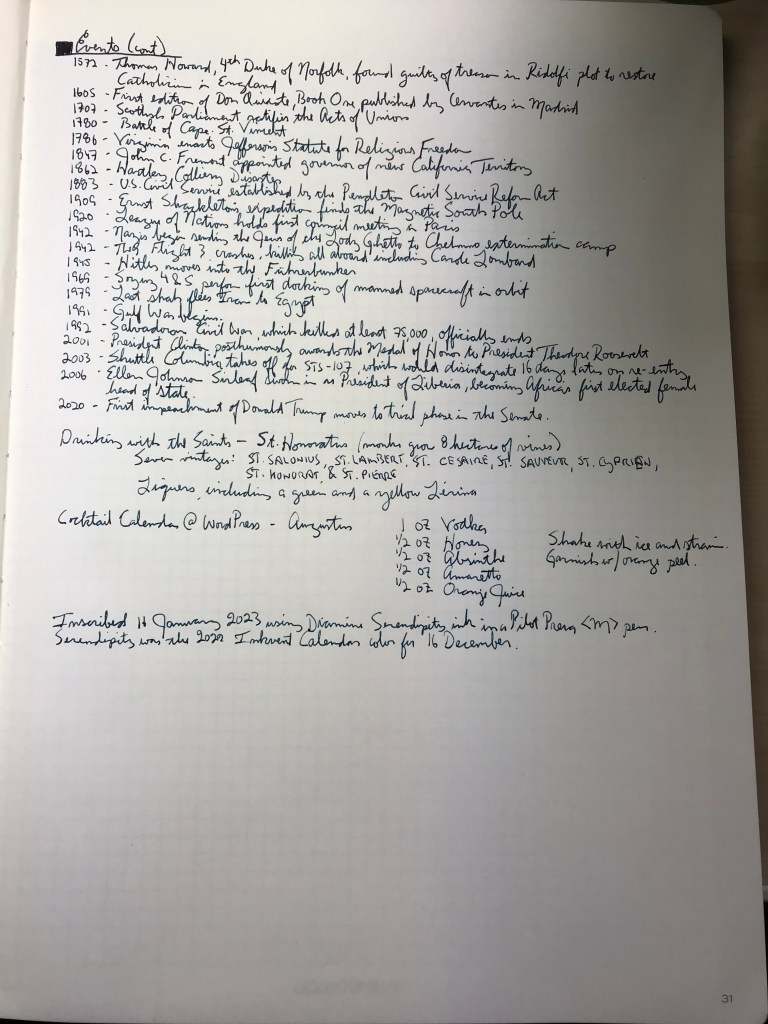 Events (cont)
1572 - Thomas Howard, 4th Duke of Norfolk, found guilty of treason in Ridolfi plot to restore
Catholicism in England
1605 - First edition of Don Quixote, Book One, published by Cervantes in Madrid
1707 - Scottish Parliament ratifies the Acts of Union
1780 - Battle of Cape St. Vincent
1786 - Virginia enacts Jefferson's Statute for Religious Freedom
1847 - John C. Fremont appointed governor of new California Territory
1862 - Hartley Colliery Disaster
1883 - U.S. Civil Service established by the Pendleton Civil Service Reform Act
1909 - Ernest Shackleton's expedition finds the Magnetic South Pole
1920 - League of Nations holds first council meeting in Paris
1942 - Nazis begin sending the Jews of the Lodz Ghetto to Chelmno extermination camp
1942 - TWA Flight 3 crashes, killing all aboard including Carole Lombard
1945 - Hitler moves into the Führerbunker
1969 - Soyuz 4 & 5 perform first docking of manned spacecraft in orbit
1979 - Last shah flees Iran to Egypt
1991 - Gulf War begins.
1992 - Salvadoran Civil War, which killed at least 75,000, officially ends
2001 - President Clinton posthumously awards the Medal of Honor to President Theodore Roosevelt
2003 - Shuttle Columbia takes off for STS-107, which would disintegrate 16 days later on re-entry
2006 - Ellen Johnson Sirleaf sworn in as President of Liberia, becoming Africa's first elected female
head of state.
2020 - First impeachment of Donald Trump moves to trial phase in the Senate.
Drinking with the Saints - St. Honoratus (monks grow 8 hectares of vines)
Seven vintages: ST. SALONIUS, ST. LAMBERT, ST. CESAIRE, ST. SAUVEUR, ST. CYPRIEN,
ST. HONORAT, & ST. PIERRE
Liquers, including a green and a yellow Lérina
Cocktail Calendar @ WordPress - Augustus
1 oz Vodka
1/2 oz Honey
1/2 oz Absinthe
1/2 oz Amaretto
1/2 oz Orange Juice
Shake with ice and strain.
Garnish w/ orange peel.
Inscribed 16 January 2023 using Diamine Serendipity ink in a Pilot Prera <M> pen.
Serendipity was the 2022 Inkvent Calendar color for 16 December.
31